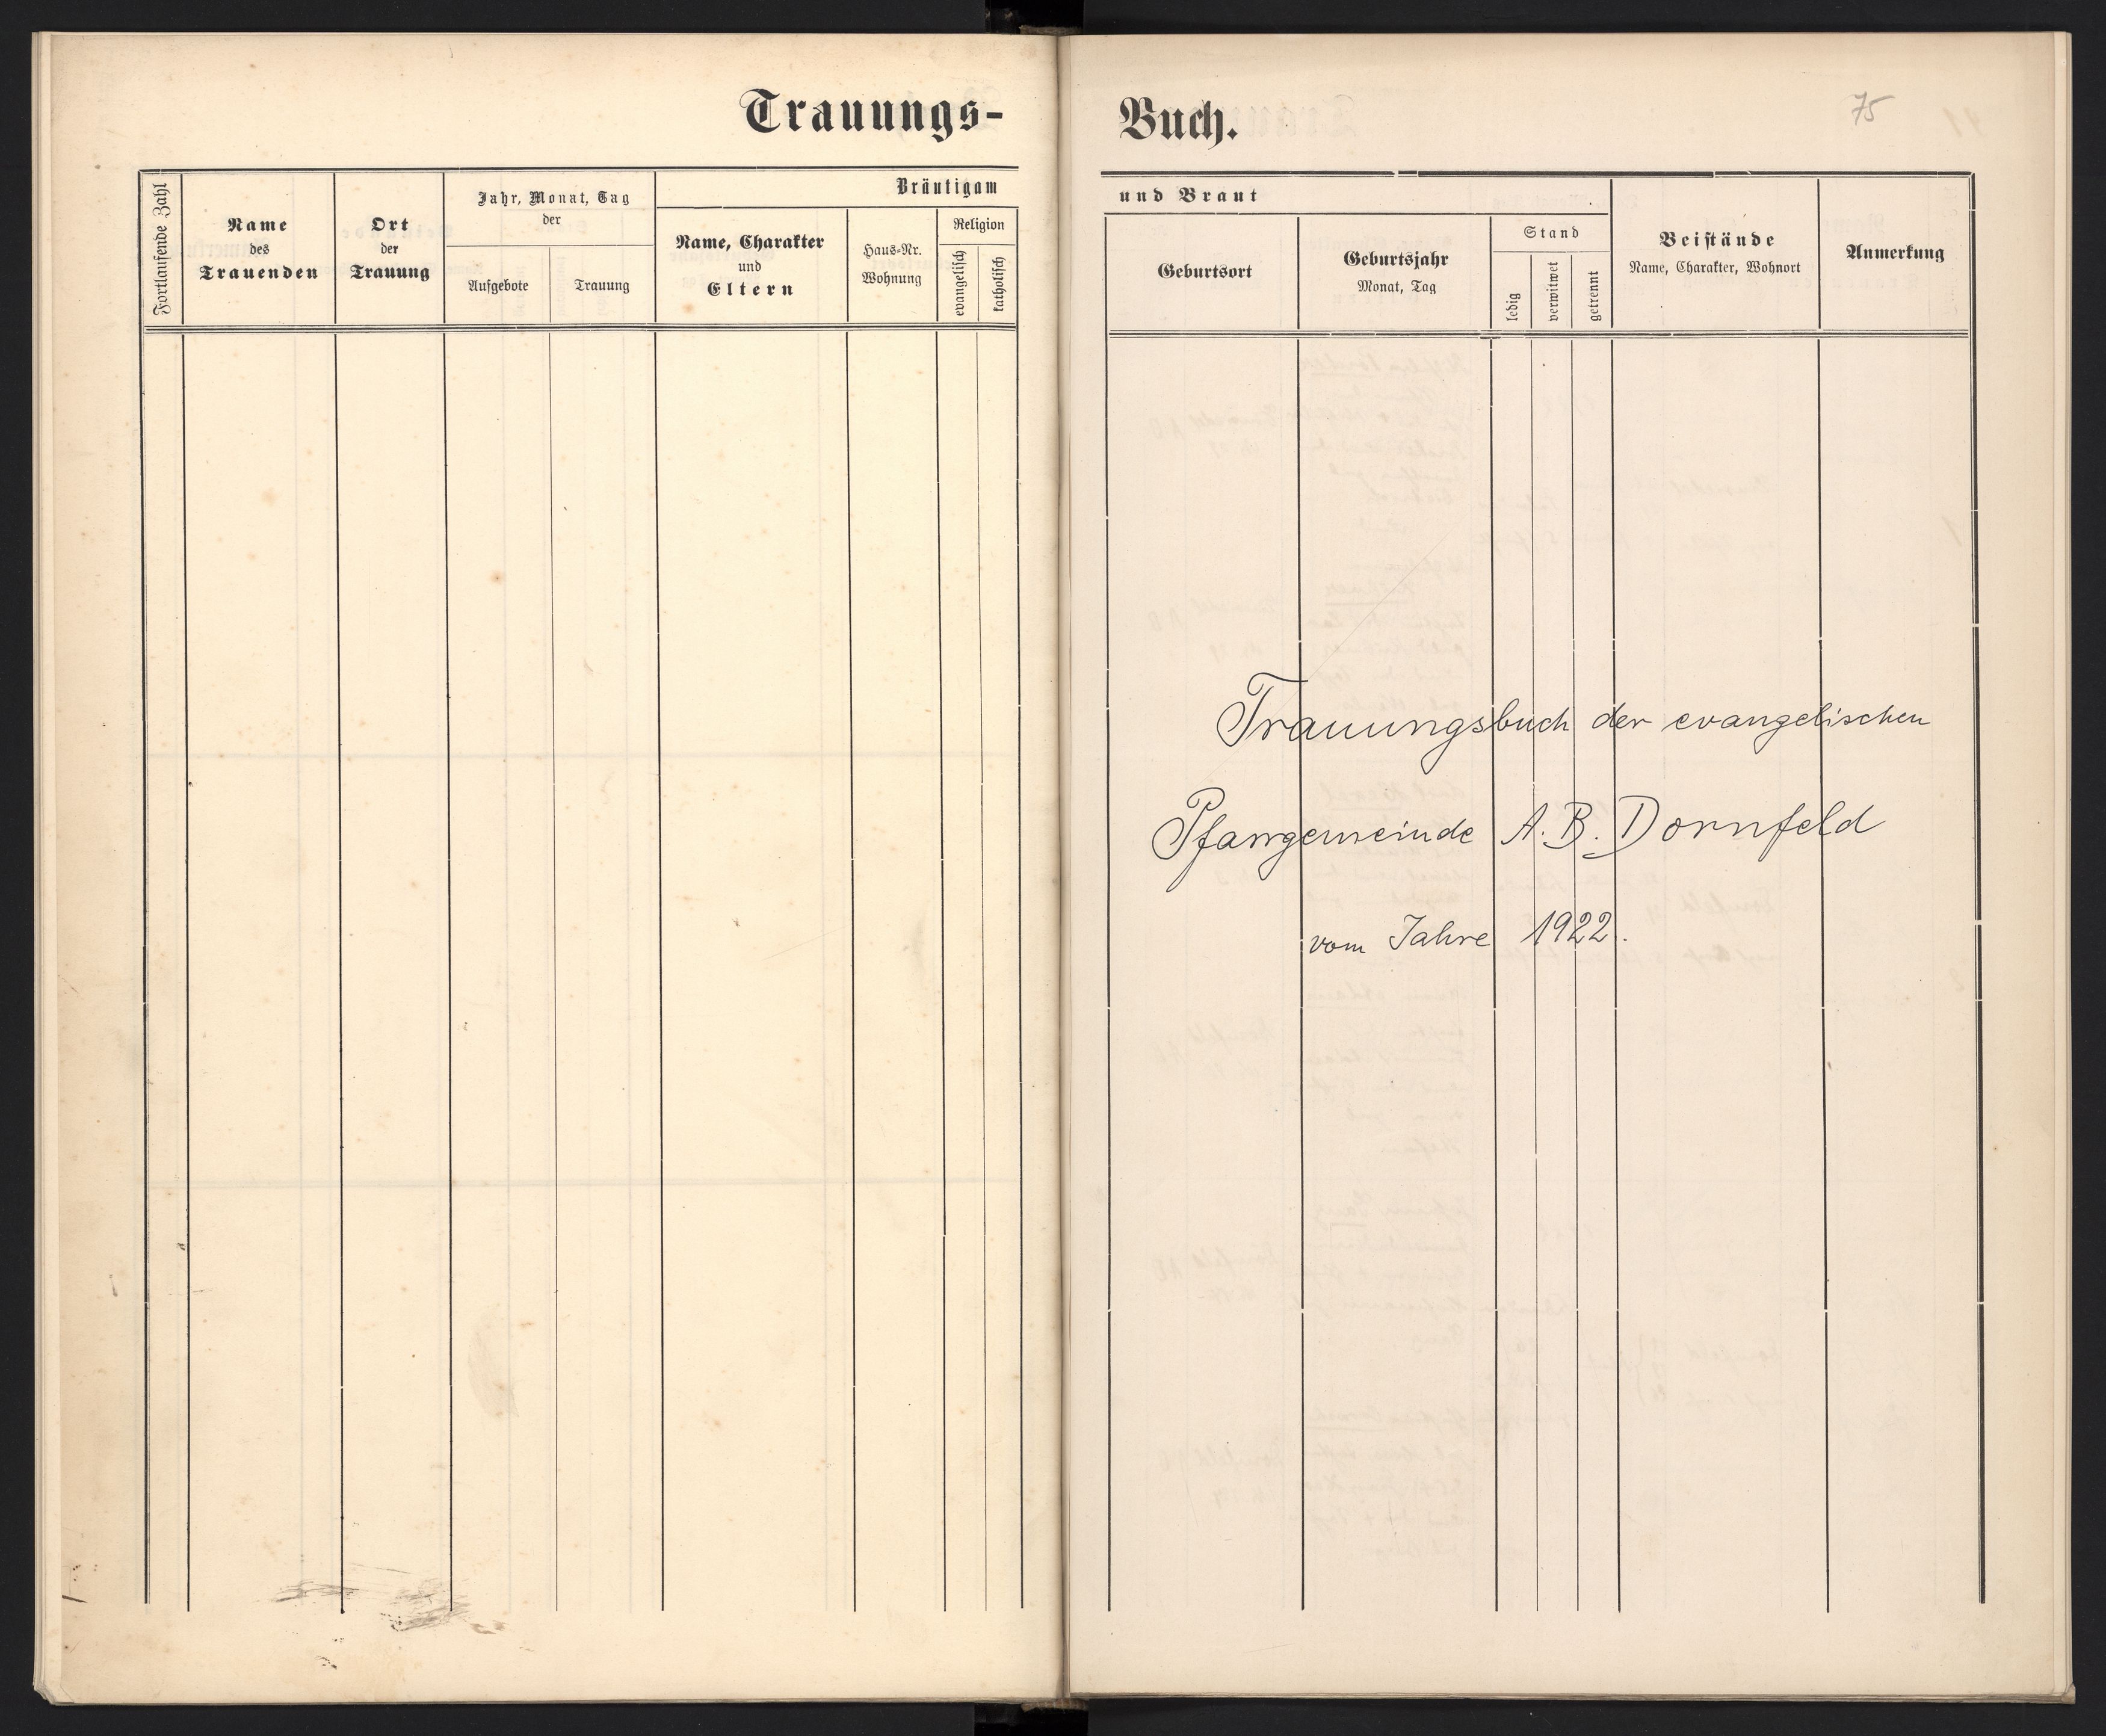 Trauungs-
Fortlaufende Zahl
Name
des
Trauenden
Ort
der
Trauung
Jahr, Monat, Tag
der
Aufgebote
Trauung
Bräutigam
Name, Charakter
und
Eltern
Haus-Nr.
Wohnung
Religion
evangelisch
katholisch
Buch.
75
und Braut
Geburtsort
Geburtsjahr
Monat, Tag
Stand
ledig
verwitwet
getrennt
Beistände
Name, Charakter, Wohnort
Anmerkung
Trauungsbuch der evangelischen
Pfarrgemeinde A. B. Dornfeld
vom Jahre 1922.